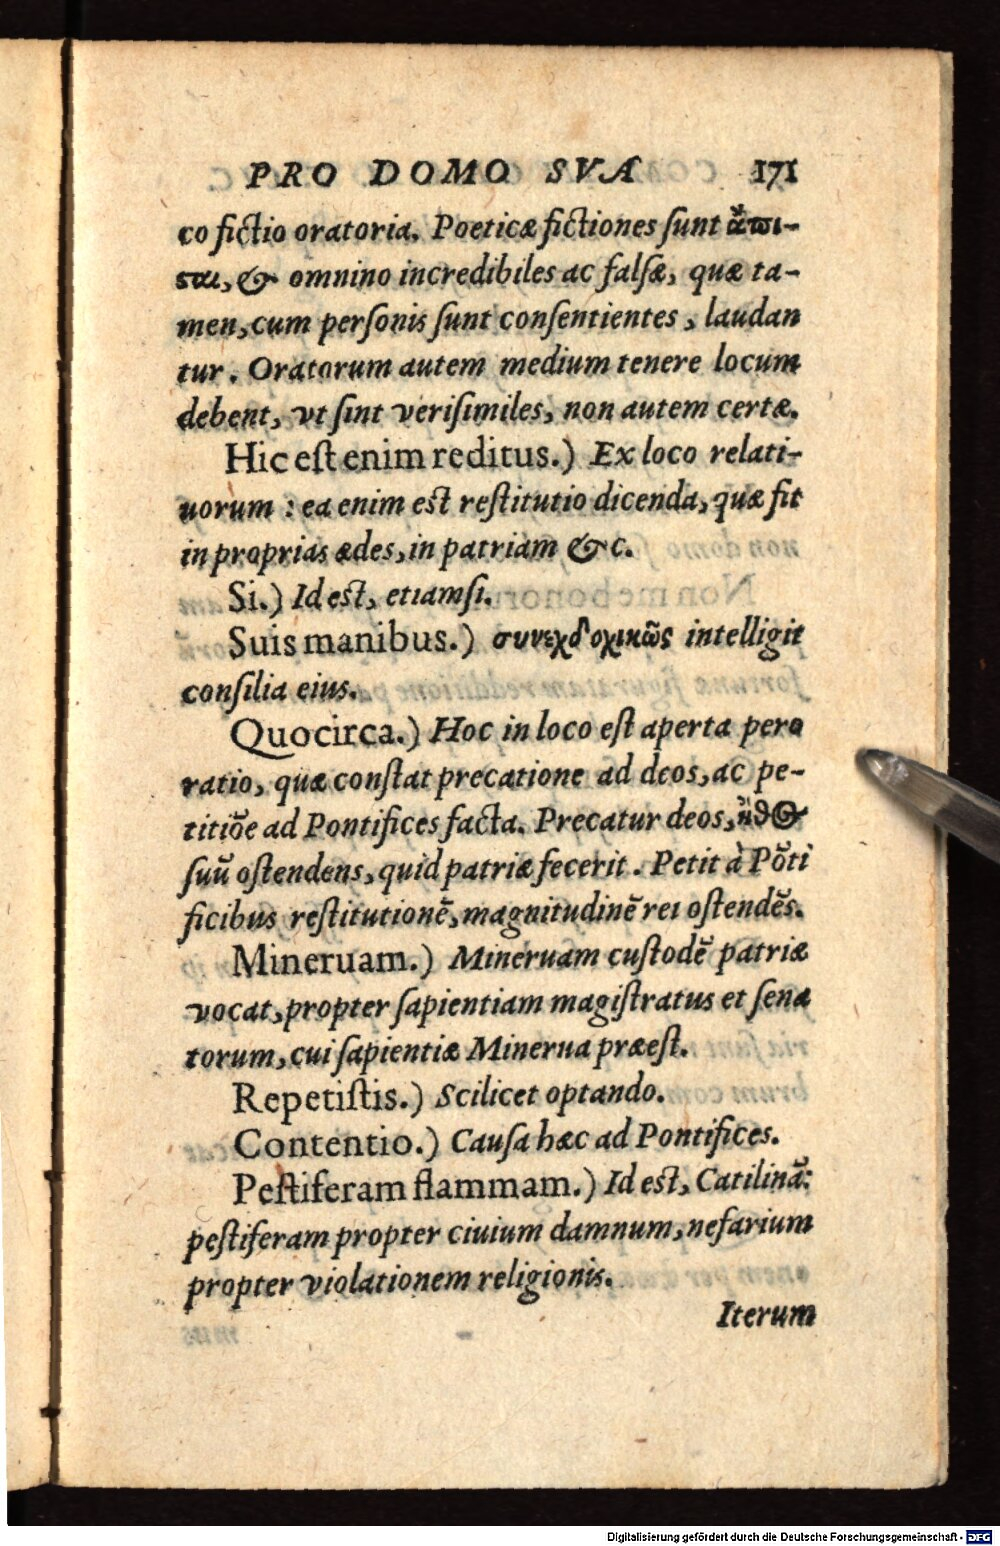 PRO DOMO SVA 171
co fictio oratoria. Poeticæ fictiones ſunt ἄπι-
ςαι, & omnino incredibiles ac falſæ, quæ ta-
men, cum perſonis ſunt conſentientes, laudan
tur. Oratorum autem medium tenere locum
debent, vt ſint veriſimiles, non autem certæ.
Hic eſt enim reditus.) Ex loco relati-
uorum: ea enim est reſtitutio dicenda, quæ fit
in proprias ædes, in patriam &c.
Si.) Id est, etiamſi.
Suis manibus.) συνεχδοχικῶς intelligit
conſilia eius.
Quocirca.) Hoc in loco eſt aperta pero
ratio, quæ conſtat precatione ad deos, ac pe-
titiōe ad Pontifices facta. Precatur deos, ἦθΘ
ſuū oſtendens, quid patriæ fecerit. Petit à Pōti
ficibus reſtitutionē, magnitudinē rei oſtendēs.
Mineruam.) Mineruam cuſtodē patriæ
vocat, propter ſapientiam magiſtratus et ſena
torum, cui ſapientiæ Minerua præeſt.
Repetiſtis.) Scilicet optando.
Contentio.) Cauſa hæc ad Pontifices.
Peſtiferam flammam.) Id est, Catilinā:
peſtiferam propter ciuium damnum, nefarium
propter violationem religionis.
Iterum
Digitalisierung gefördert durch die Deutsche Forschungsgemeinschaft - DFG